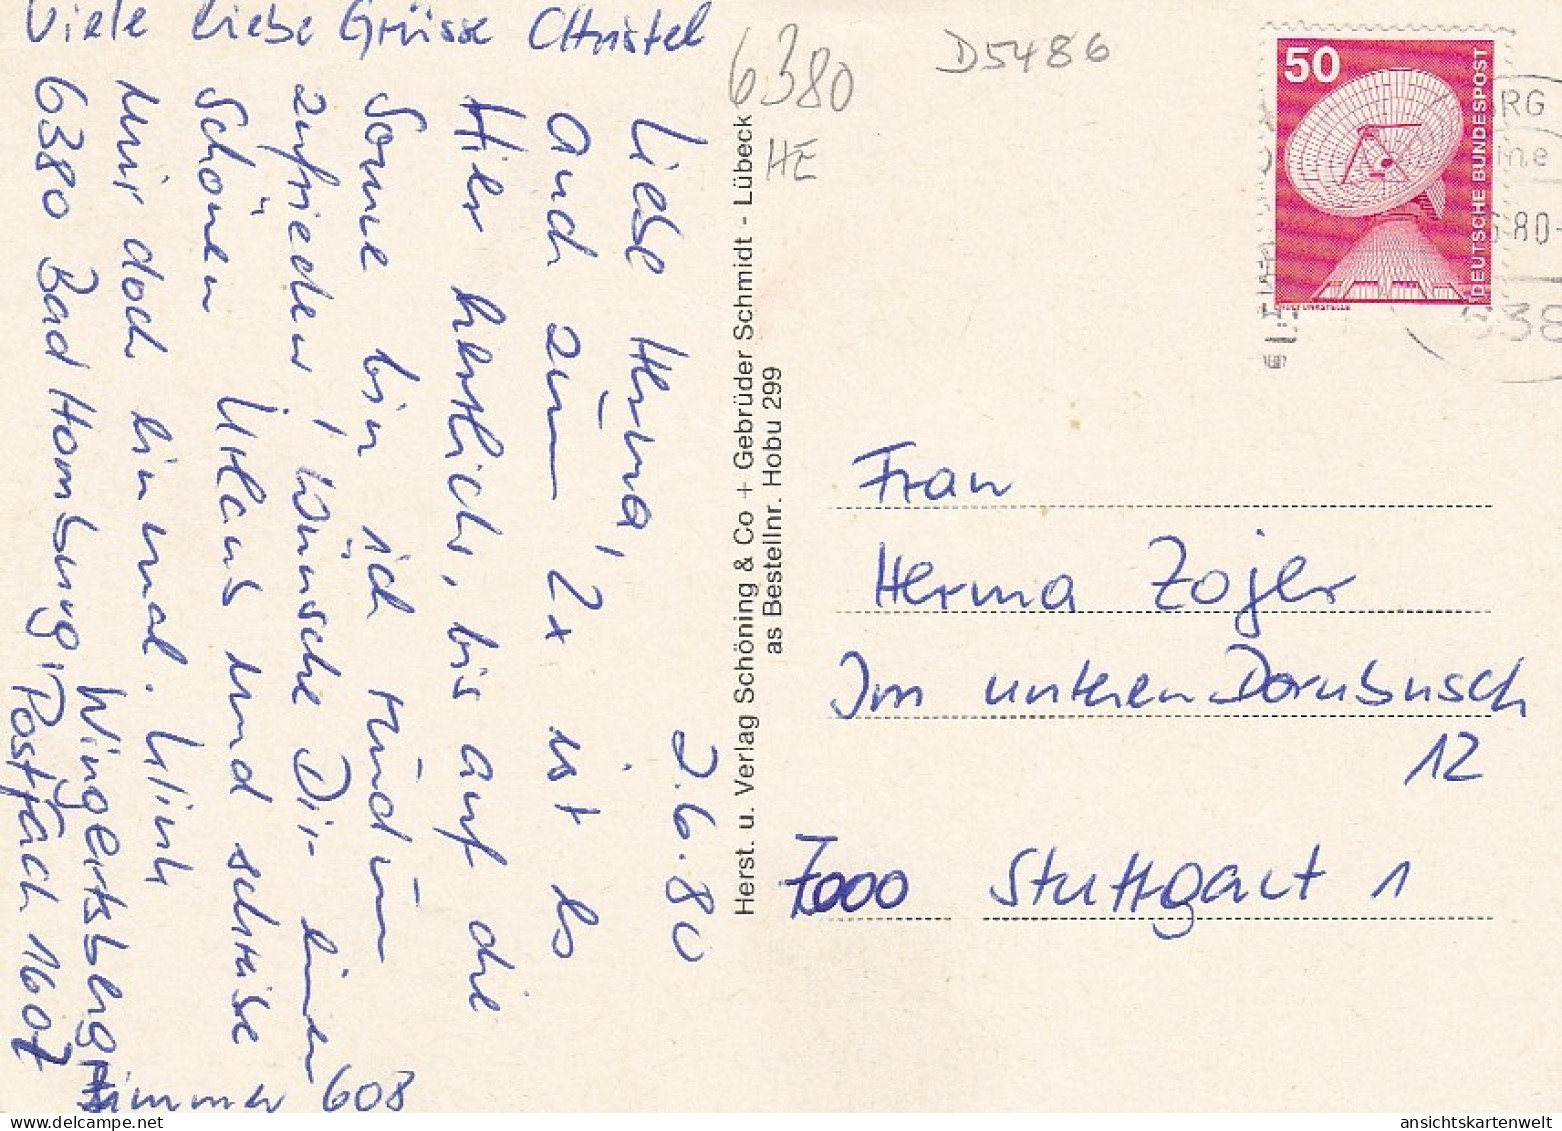 2.6.80
Liebe Herma,
auch zum 2x ist es
Hier herrlich, bis auf die
Sonne bin ich rundum
zufrieden, wünsche Dir einen
Schönen Urlaub und schreibe
mir doch einmal. Klinik
Wingertsberg
6380 Bad Homburg, Postfach 1607
Zimmer 608
Viele liebe Grüsse Christel
Herst. u. Verlag Schöning & Co + Gebrüder Schmidt - Lübeck
as Bestellnr. Hobu 299
6380
HE
D5486
50
DEUTSCHE BUNDESPOST
80
Frau
Herma Zojer
Im unteren Dornbusch
12
7000 Stuttgart 1
ansichtskartenwelt